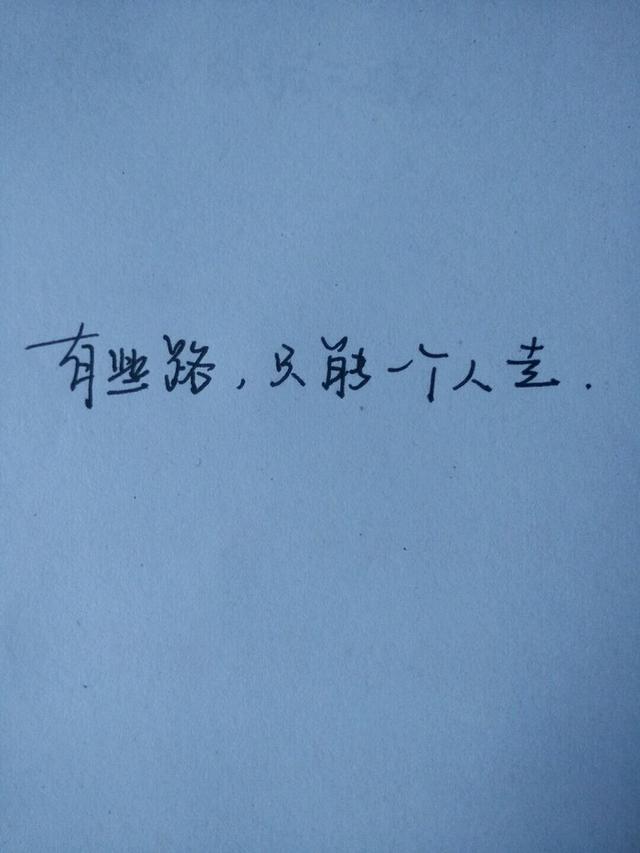 有些路,只能一个人走.